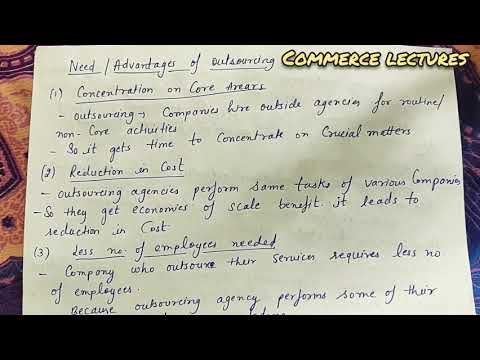 Need / Advantages of outsourcing
COMMERCE LECTURES
(1) Concentration on Core Areas
- outsourcing → Companies hire outside agencies for routine/
non-Core activities
- So it gets time to Concentrate on Crucial matters
(2) Reduction in Cost
- outsourcing agencies perform same tasks of various Companies
- So they get economies of scale benefit. it leads to
reduction in Cost
(3) Less no. of employees needed
- Company who outsource their Services requires less no
of employees.
Because outsourcing agency performs some of their